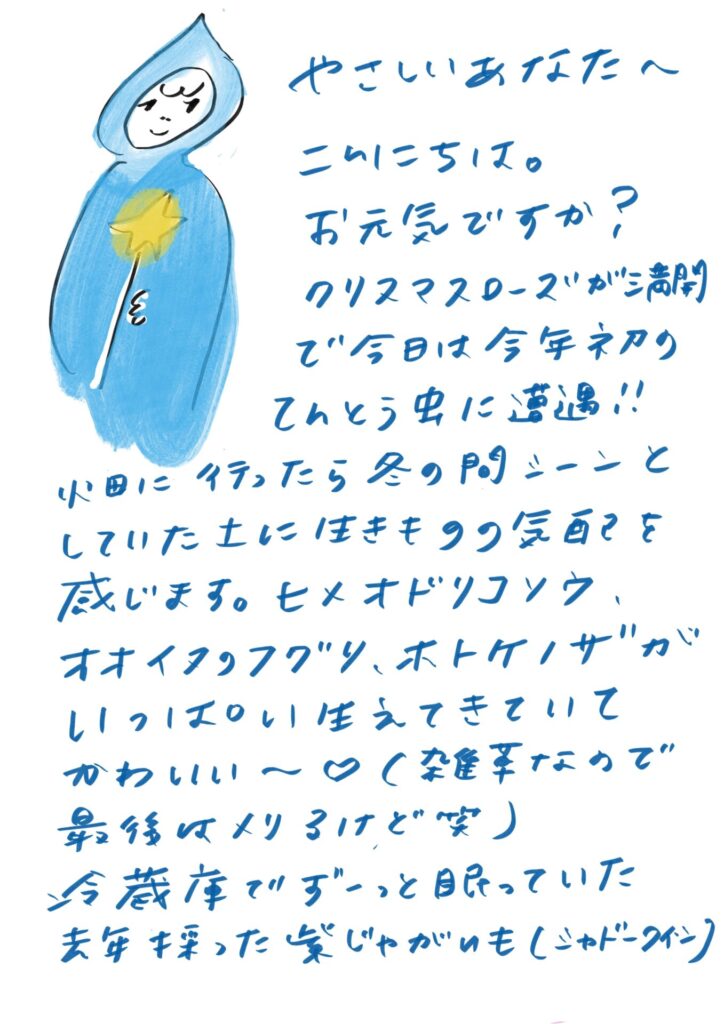 やさしいあなたへ
こんにちは。
お元気ですか?
クリスマスローズが満開
で今日は今年初の
てんとう虫に遭遇!!
畑に行ったら冬の間シーンと
していた土に生きものの気配を
感じます。ヒメオドリコソウ、
オオイヌノフグリ、ホトケノザが
いっぱい生えてきていて
かわいい〜♡(雑草なので
最後はメリるけど笑)
冷蔵庫でずーっと眠っていた
去年採った紫じゃがいも(シャドークイーン)